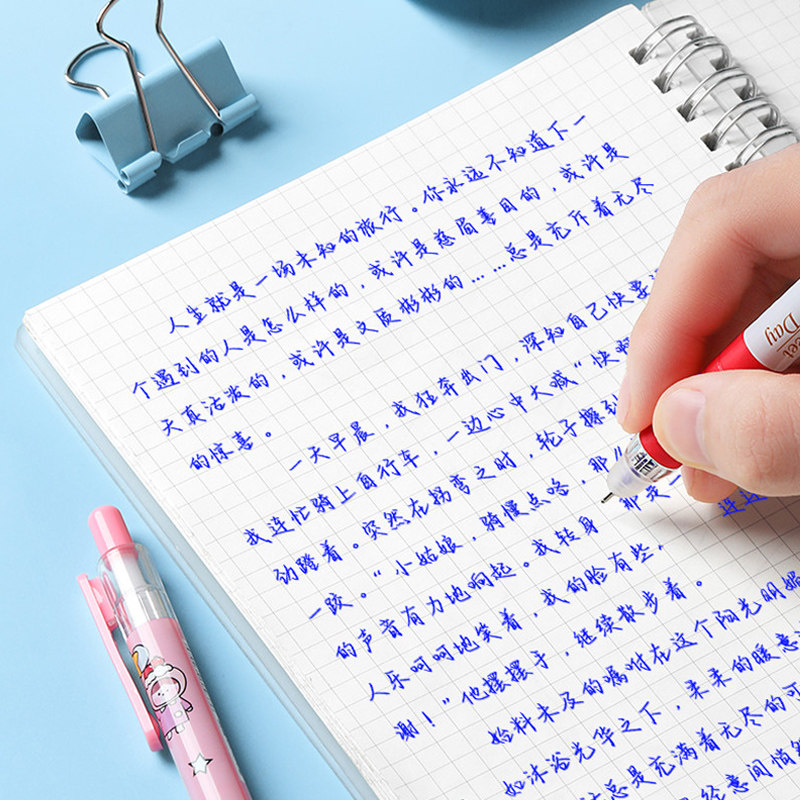 人生就是一场未知的旅行。你永远不知道下一
个遇到的人是怎么样的，或许是慈眉善目的，或许是
天真活泼的，或许是文质彬彬的……总是充斥着无尽
的惊喜。
一天早晨，我狂奔出门，深知自己快要
我连忙骑上自行车，一边心中大喊“快
劲蹬着。突然在拐弯之时，轮子擦到
一跤。“小姑娘，骑慢点咯，那
的声音有力地响起。我转身 那是一 连连
人乐呵呵地笑着，我的脸有些，
谢！”他摆摆手，继续散步着。
始料未及的嘱咐在这个阳光明媚
如沐浴光华之下，柔柔的暖意
总是充满着无尽的可
经意间悄然
Day